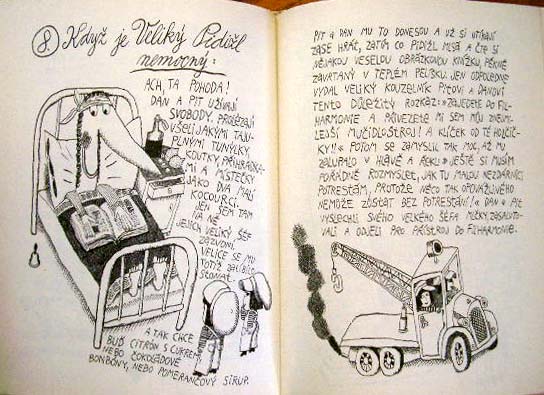 8. Když je Veliký Pidižl
nemocný:
ACH, TA POHODA!
DAN A PIT UŽÍVAJÍ
SVOBODY, PROLÉZAJÍ
VŠELIJAKÝMI TAJU-
PLNÝMI TUNÝLKY,
KOUTKY, PŘIHRÁDKA-
MI A MÍSTEČKY
JAKO DVA MALÍ
KOCOURCI.
JEN SEM TAM
NA NĚ
JEJICH VELIKÝ ŠÉF
ZAZVONÍ.
VELICE SE MU
TOTIŽ ZALÍBILO
STONAT.
A TAK CHCE
BUĎ CITRÓN S CUKREM
NEBO ČOKOLÁDOVÉ
BONBÓNY, NEBO POMERANČOVÝ SIRUP.
PIT A DAN MU TO DONESOU A UŽ SI UTÍKAJÍ
ZASE HRÁT, ZATÍM CO PIDIŽL MLSÁ A ČTE SI
NĚJAKOU VESELOU OBRÁZKOVOU KNÍŽKU, PĚKNĚ
ZAVRTANÝ V TEPLÉM PELÍŠKU. JEN ODPOLEDNE
VYDAL VELIKÝ KOUZELNÍK PITOVI A DANOVI
TENTO DŮLEŽITÝ ROZKAZ: "ZAJEDETE DO FIL-
HARMONIE A PŘIVEZETE MI SEM MŮJ
MUČIDLOSTROJ! A KLÍČEK OD TÉ HOLČIČ-
KY!!" POTOM SE ZAMYSLIL TAK MOC, AŽ MU
ZALUPALO V HLAVĚ A ŘEKL: "JEŠTĚ SI MUSÍM
POŘÁDNĚ ROZMYSLET, JAK TU MALOU NEZDÁRNICI
POTRESTÁM, PROTOŽE NĚCO TAK OPOVÁŽLIVÉHO
NEMŮŽE ZŮSTAT BEZ POTRESTÁNÍ!" DAN A PIT
VYSLECHLI SVÉHO VELKÉHO ŠÉFA MLČKY, ZASALUTO-
VALI A ODJELI PRO PŘÍSTROJ DO FILHARMONIE.